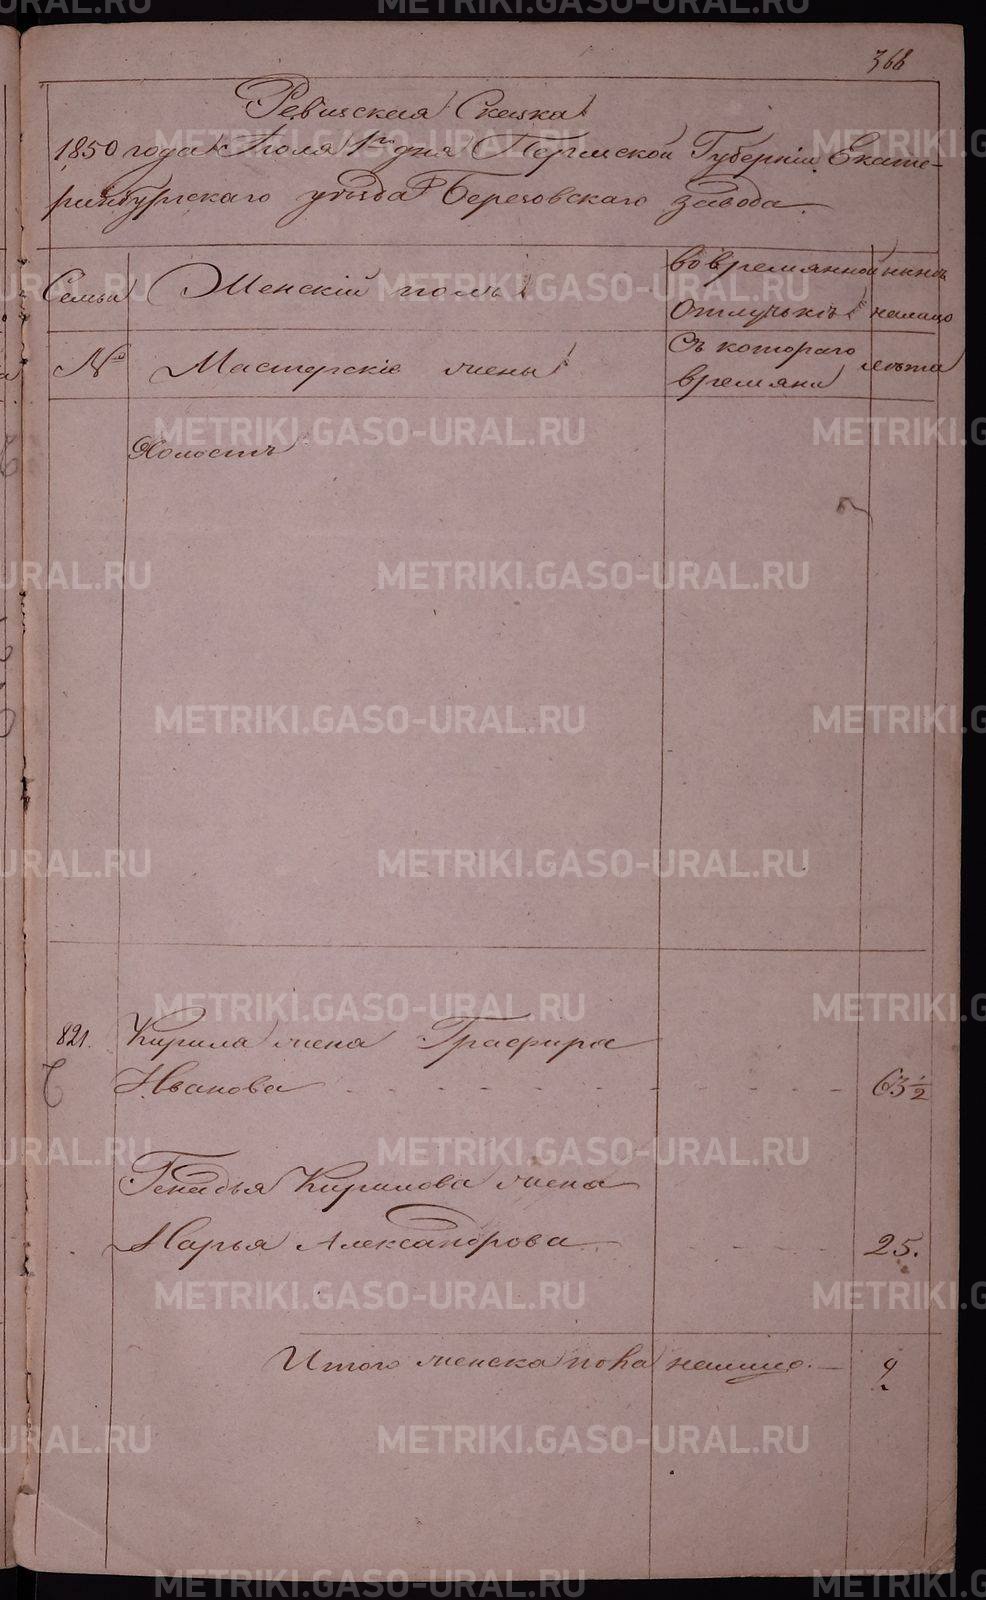 368
Ревизская Сказка
1850 года Июля 1го дня Пермской Губернии Екате-
ринбургскаго уезда Березовскаго завода.
Семьи
Женский полъ
во времянной
отлучькѣ
ныне
налицо
№
Мастерские жены
Съ котораго
времяни
лета
Холостъ
821.
Кирила жена Графира
Иванова
63 1/2
Генадья Кирилова жена
Марья Александрова
25.
Итого женска пола налицо.
METRIKI.GASO-URAL.RU